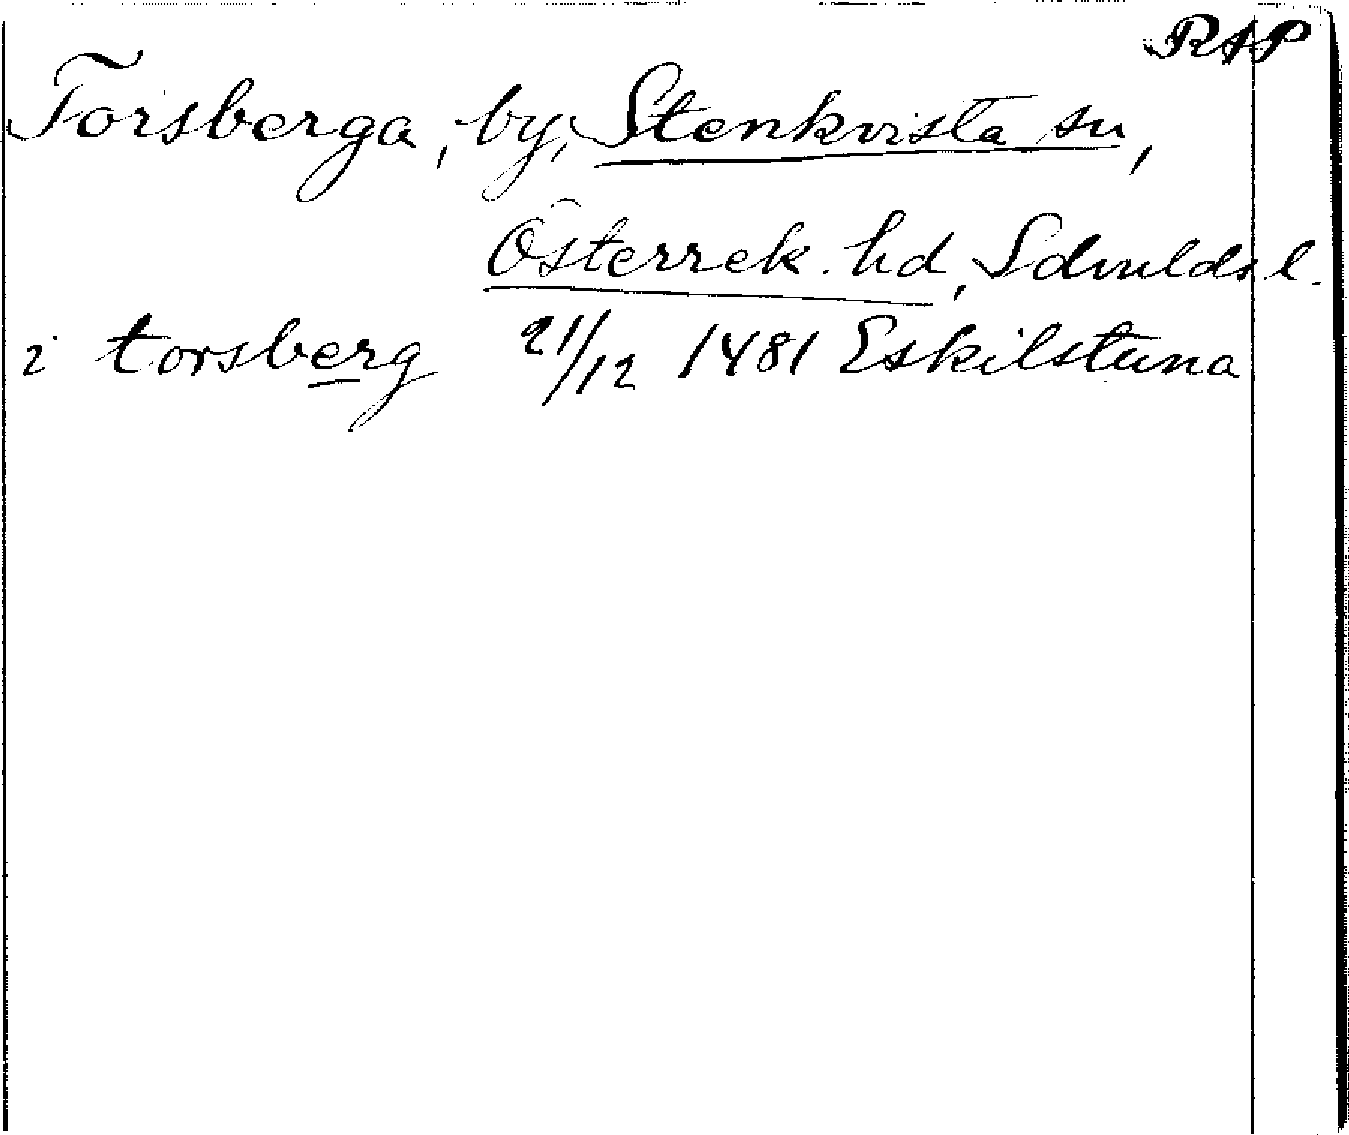 RAP
Torsberga, by, Stenkvista sn,
Österrek. hd, Sdmlds l.
i torsberg 21/12 1481 Eskilstuna